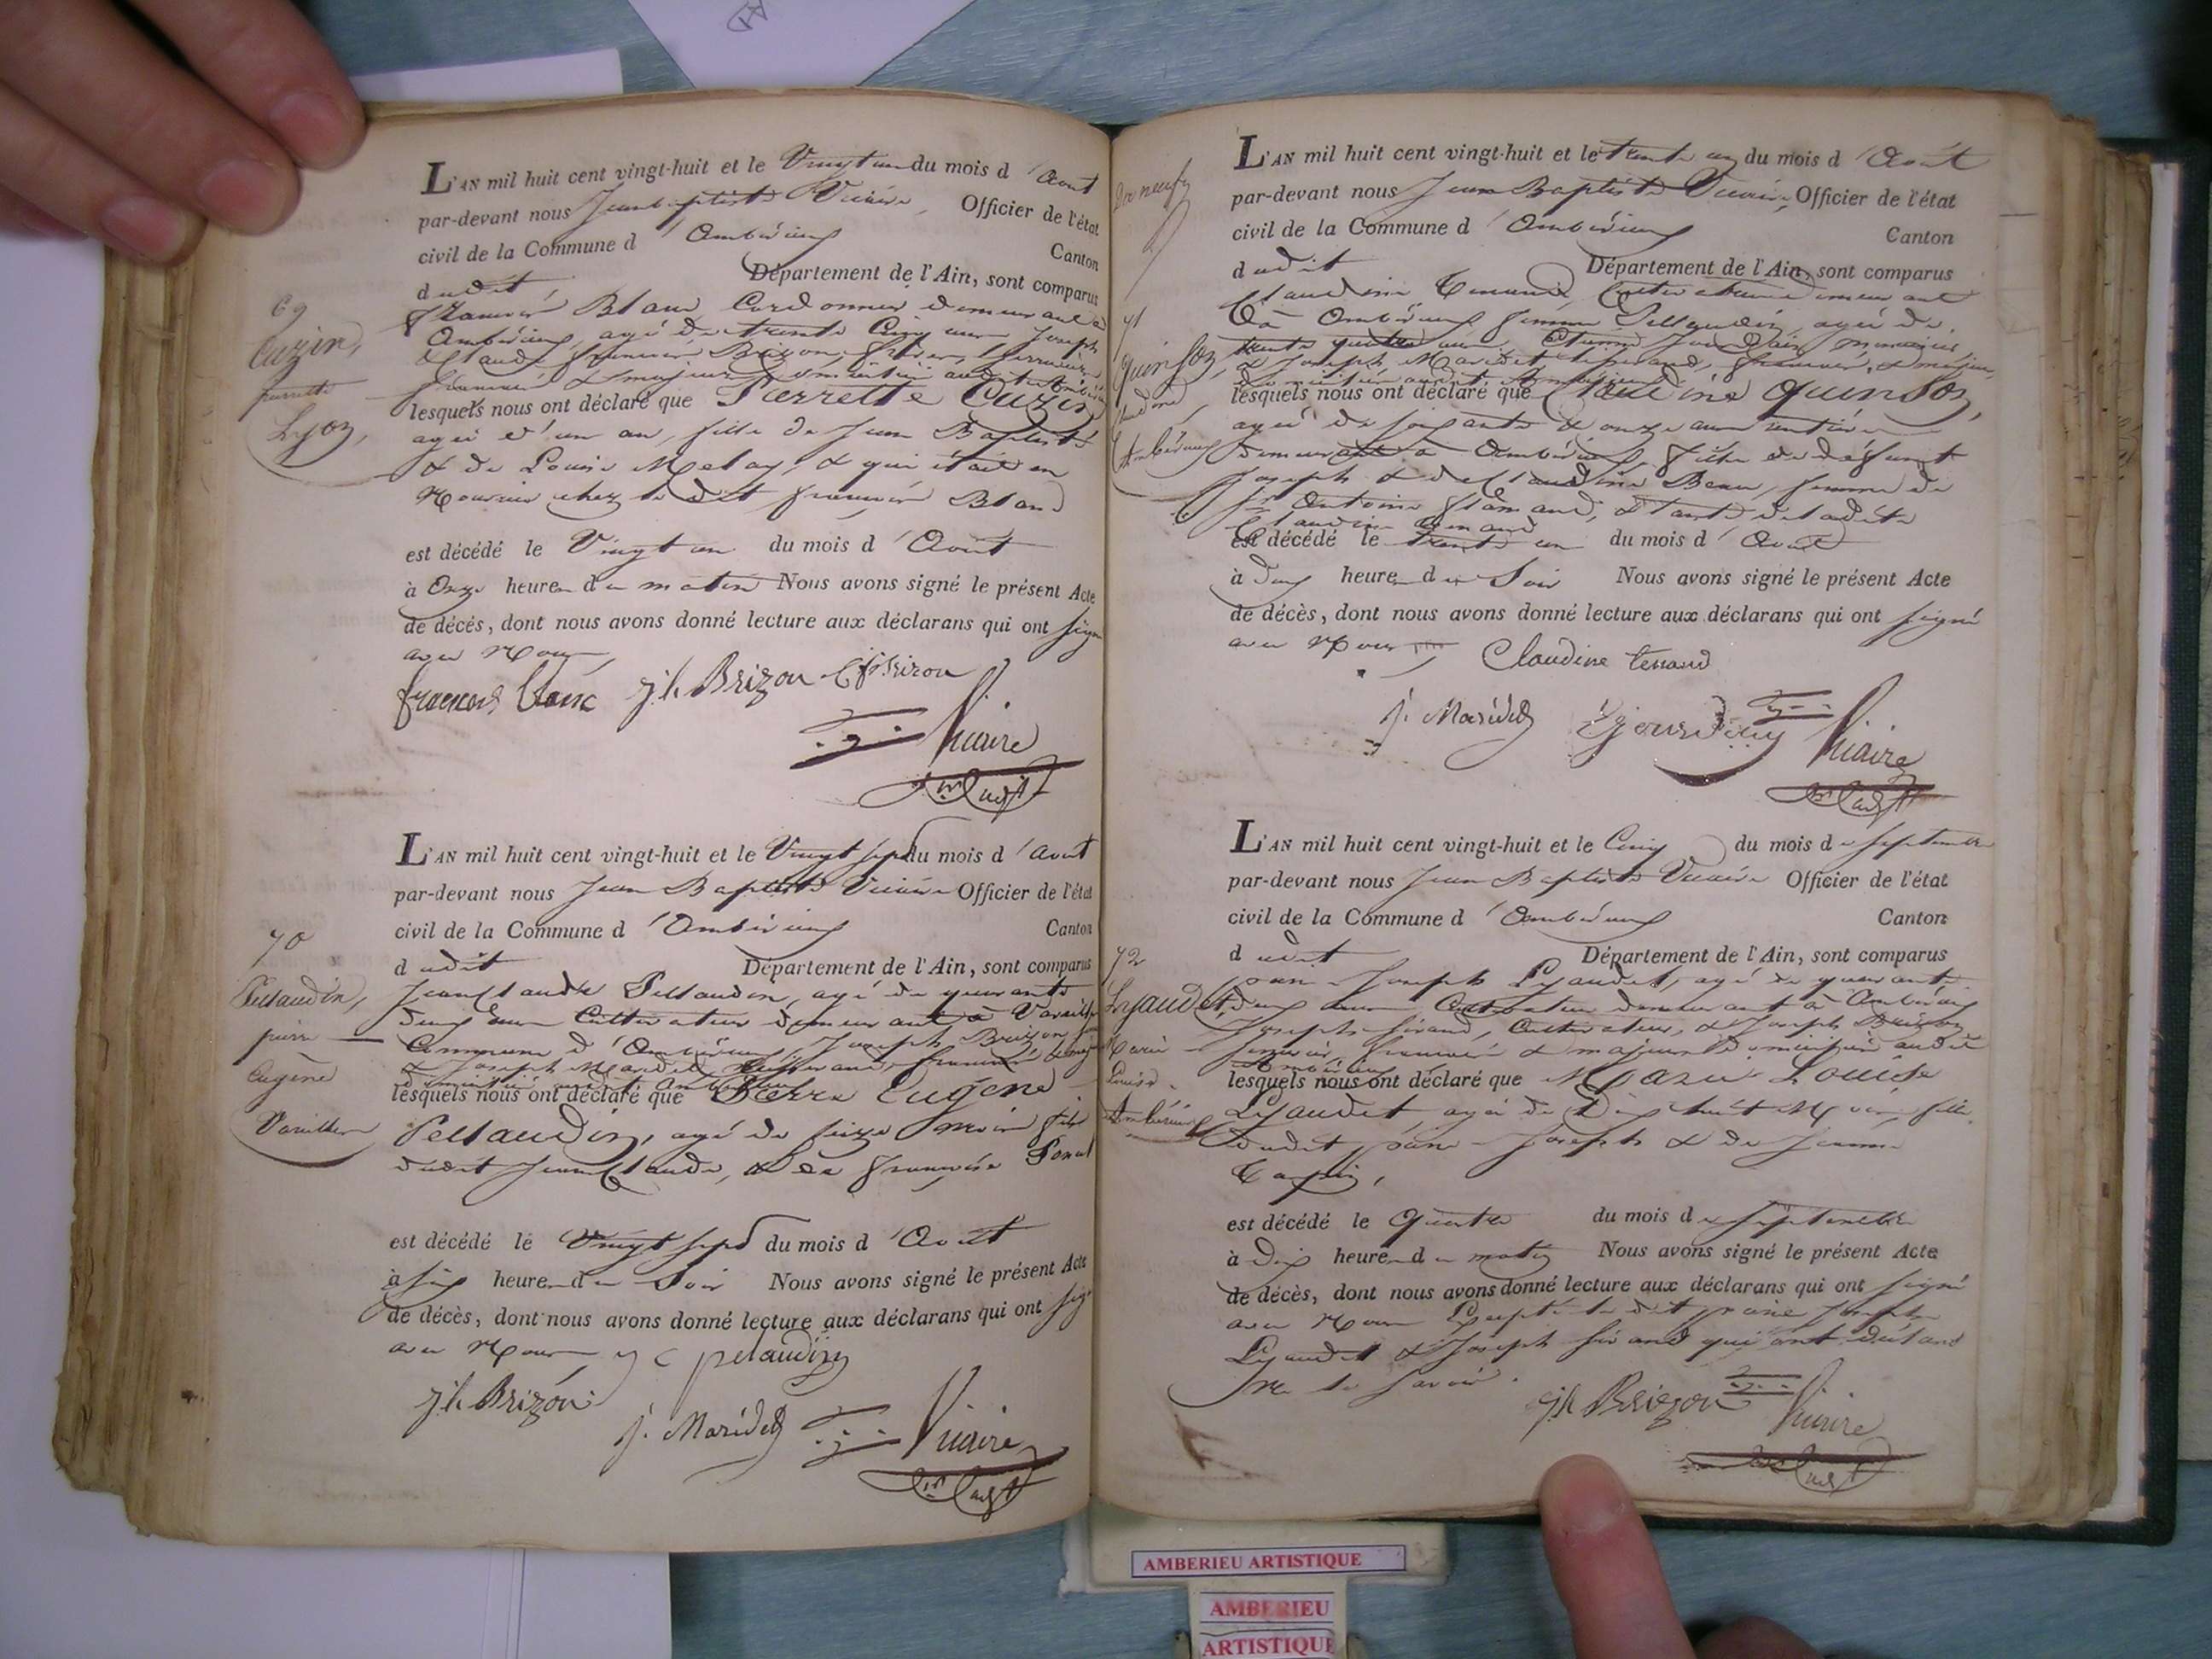 L'AN mil huit cent vingt-huit et le Vingt un du mois d'Aout
par-devant nous Jean Baptiste Vicaire, Officier de l'état
civil de la Commune d'Ambérieux Canton
dudit Département de l'Ain, sont comparus
69
Cuzin,
pierrette
Lyon,
françois Blanc Cordonnier demeurant à
Ambérieux, agé de trente Cinq ans Joseph
& Claude françois Brizon, frères,
françois & majeurs domiciliés audit Ambérieux
lesquels nous ont déclaré que Pierrette Cuzin
agée d'un an, fille de Jean Baptiste
& de Louise Melay, & qui était en
Nourrice chez le dit françois Blanc
est décédé le Vingt un du mois d'Août
à Onze heures du matin Nous avons signé le présent Acte
de décès, dont nous avons donné lecture aux déclarans qui ont signé
avec Nous,
francois blanc jh Brizon C f Brizon
Vicaire
L'AN mil huit cent vingt-huit et le Vingt sept du mois d'Août
par-devant nous Jean Baptiste Vicaire Officier de l'état
civil de la Commune d'Ambérieux Canton
dudit Département de l'Ain, sont comparus
70
Pellaudin,
pierre
Eugène
Vareilles
Jean Claude Pellaudin, agé de quarante
deux ans Cultivateur demeurant à Vareilles
Commune d'Ambérieux, Joseph Brizon
& Joseph Maridet tisserand, françois & majeurs
domiciliés audit Ambérieux
lesquels nous ont déclaré que Pierre Eugene
Pellaudin, agé de seize mois fils
dudit Jean Claude, & de françoise Bonal
est décédé le Vingt sept du mois d'Août
à six heures du Soir Nous avons signé le présent Acte
de décès, dont nous avons donné lecture aux déclarans qui ont signé
avec Nous J C pelaudin
jh Brizon
j. Maridet Vicaire
L'AN mil huit cent vingt-huit et le trente un du mois d'Août
par-devant nous Jean Baptiste Vicaire, Officier de l'état
civil de la Commune d'Ambérieux Canton
dudit Département de l'Ain, sont comparus
71
quinson,
Claudine
Ambérieux
Claudine Tenand, Cultivatrice demeurant
à Ambérieux femme Pellaudin, agée de
trente quatre ans, Etienne Jourdain
& Joseph Maridet tisserand, françois, & majeurs,
domiciliés audit Ambérieux
lesquels nous ont déclaré que Claudine quinson,
agée de soixante & onze ans rentière
demeurante à Ambérieux, fille de défunt
Joseph & de Claudine Beau, femme de
Antoine flamand, & tante de ladite
Claudine Tenand
est décédé le trente un du mois d'Août
à deux heures du Soir Nous avons signé le présent Acte
de décès, dont nous avons donné lecture aux déclarans qui ont signé
avec Nous Claudine tenand
j. Maridet E jourdain Vicaire
L'AN mil huit cent vingt-huit et le Cinq du mois de septembre
par-devant nous Jean Baptiste Vicaire Officier de l'état
civil de la Commune d'Ambérieux Canton
dudit Département de l'Ain, sont comparus
72
Lyaudet,
Marie
Louise
Ambérieux
Joseph Lyaudet, agé de quarante
deux ans Cultivateur demeurant à Ambérieux
Joseph Sirand, Cultivateur, & Joseph Brizon
françois & majeurs domiciliés audit
Ambérieux
lesquels nous ont déclaré que Marie Louise
Lyaudet, agée de Dix huit Mois, fille
dudit Joseph & de Jeanne
est décédé le Quatre du mois de septembre
à Dix heures du matin Nous avons signé le présent Acte
de décès, dont nous avons donné lecture aux déclarans qui ont signé
avec Nous Excepté le dit Joseph
Lyaudet & Joseph Sirand qui ont déclaré
ne le savoir.
jh Brizon Vicaire
AMBERIEU ARTISTIQUE
AMBERIEU
ARTISTIQUE